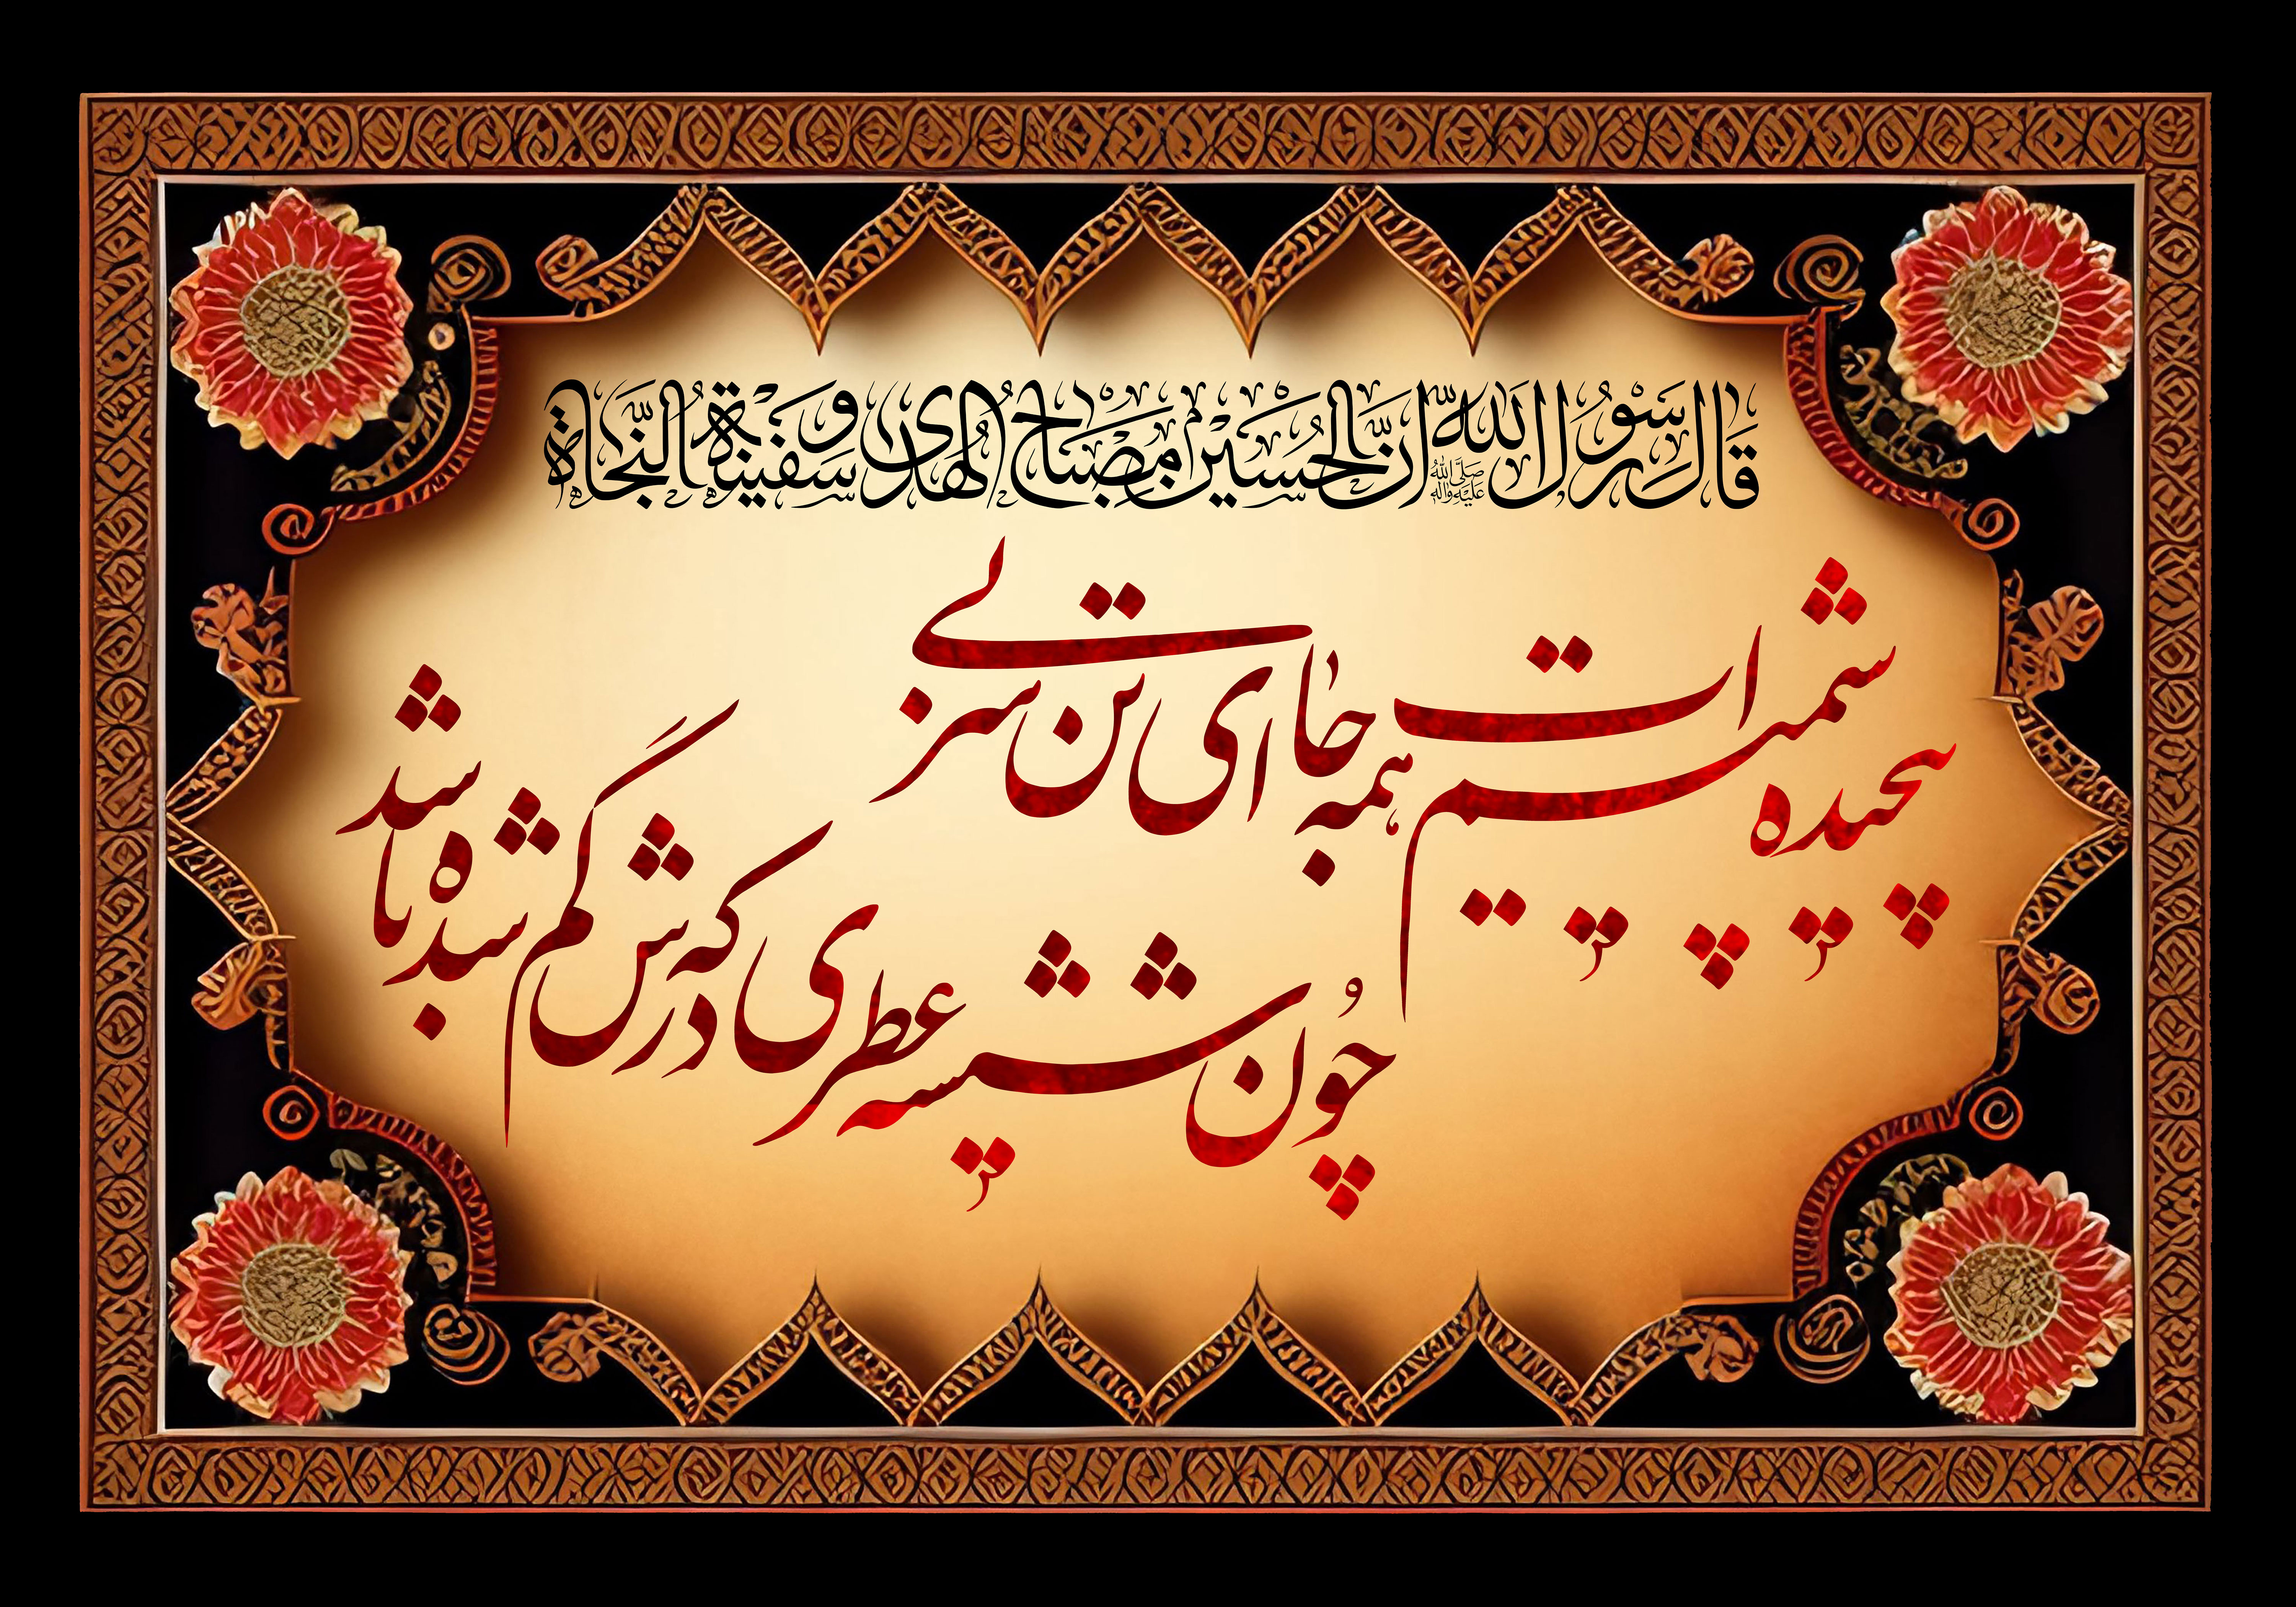 قال رسول الله صلی الله علیه وآله ان الحسین مصباح الهدی و سفینة النجاة
پیچیده شمیمت همه جا ای تن بی سر
چون شیشه عطری که درش گم شده باشد